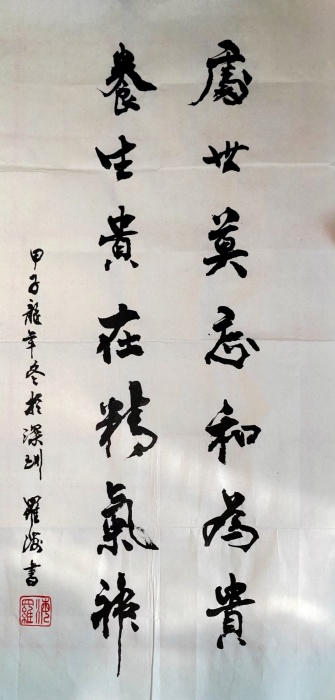 處世莫忘和為貴
養生貴在精氣神
甲子龍年冬於深圳 羅海書
羅海